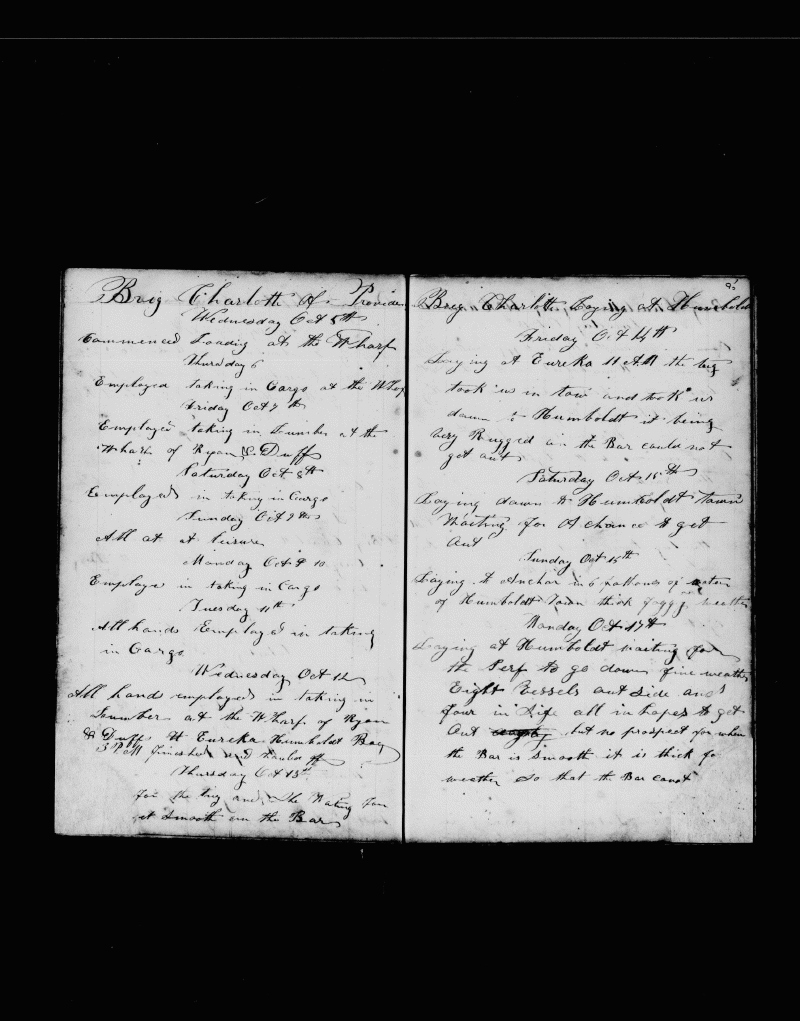 Brig Charlotte of Providen
Wednesday Oct 5th
Commenced Loading at the Wharf
Thursday 6
Employed taking in Cargo at the Wharf
Friday Oct 7th
Employed taking in Lumber at the
Wharf of Ryan & Duff
Saturday Oct 8th
Employed in taking in Cargo
Sunday Oct 9th
All at at leisure
Monday Oct 10
Employe in taking in Cargo
Tuesday 11th
All hands Employed in taking
in Cargo
Wednesday Oct 12
All hands employed in taking in
Lumber at the Wharf of Ryan
& Duff At Eureka Humboldt Bay
3 P.M finished and hauld off
Thursday Oct 13th
for the tug and the Wating for
it smooth on the Bar
Brig Charlotte Laying at Humboldt
Friday Oct 14th
Laying at Eureka 11 AM the tug
took us in tow and took us
down to Humboldt it being
very Rugged on the Bar could not
get out
Saturday Oct 15th
Laying down to Humboldt town
Waiting for A chance to get
Out
Sunday Oct 15th
Laying At Anchor in 6 fathoms of water
of Humboldt Town thick foggy weather
Monday Oct 17th
Laying at Humboldt waiting for
the Serf to go down fine weather
Eight Vessels out side and
four in Side all in hopes to get
Out but no prospect for when
the Bar is Smooth it is thick fo
weather So that the Bar canot